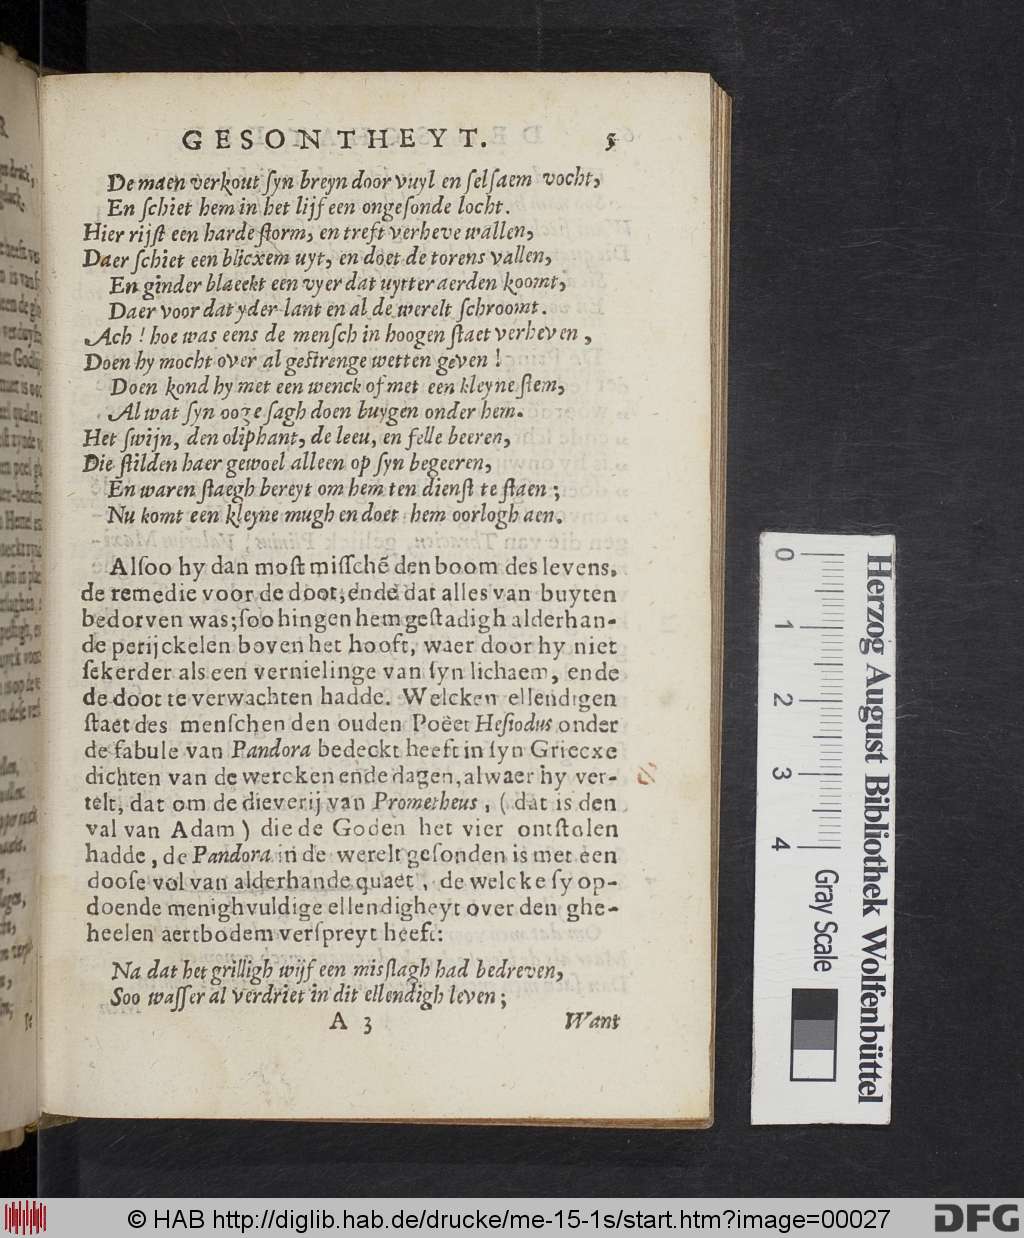 GESONTHEYT. 5
De maen verkout ſyn breyn door vuyl en ſelſaem vocht,
En ſchiet hem in het lijf een ongeſonde locht.
Hier rijſt een harde ſtorm, en treft verheve wallen,
Daer ſchiet een blicxem uyt, en doet de torens vallen,
En ginder blaeckt een vyer dat uytter aerden koomt,
Daer voor dat yder lant en al de werelt ſchroomt.
Ach ! hoe was eens de menſch in hoogen ſtaet verheven,
Doen hy mocht over al geſtrenge wetten geven !
Doen kond hy met een wenck of met een kleyne ſtem,
Al wat ſyn ooge ſagh doen buygen onder hem.
Het ſwijn, den oliphant, de leeu, en felle beeren,
Die ſtilden haer gewoel alleen op ſyn begeeren,
En waren ſtaegh bereyt om hem ten dienſt te ſtaen;
Nu komt een kleyne mugh en doet hem oorlogh aen.
Alſoo hy dan moſt miſſchẽ den boom des levens,
de remedie voor de doot, ende dat alles van buyten
bedorven was; ſoo hingen hem geſtadigh alderhan-
de perijckelen boven het hooft, waer door hy niet
ſekerder als een vernielinge van ſyn lichaem, ende
de doot te verwachten hadde. Welcken ellendigen
ſtaet des menſchen den ouden Poëet Heſiodus onder
de fabule van Pandora bedeckt heeft in ſyn Griecxe
dichten van de wercken ende dagen, alwaer hy ver-
telt, dat om de dieverij van Prometheus, (dat is den
val van Adam) die de Goden het vier ontſtolen
hadde, de Pandora in de werelt geſonden is met een
dooſe vol van alderhande quaet, de welcke ſy op-
doende menighvuldige ellendigheyt over den ghe-
heelen aertbodem verſpreyt heeft:
Na dat het grilligh wijf een miſſlagh had bedreven,
Soo waſſer al verdriet in dit ellendigh leven;
A 3 Want
0 1 2 3 4
Gray Scale
Herzog August Bibliothek Wolfenbüttel
© HAB http://diglib.hab.de/drucke/me-15-1s/start.htm?image=00027
DFG